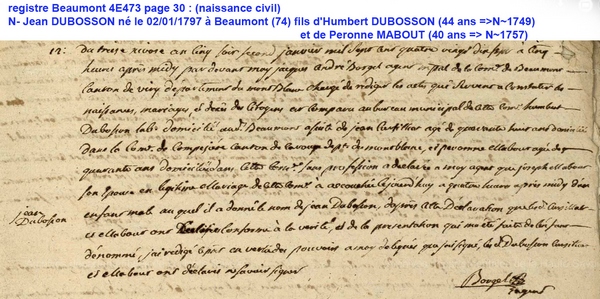 registre Beaumont 4E473 page 30 : (naissance civil)
N- Jean DUBOSSON né le 02/01/1797 à Beaumont (74) fils d'Humbert DUBOSSON (44 ans =>N~1749)
et de Peronne MABOUT (40 ans => N~1757)
du treize nivose an cinq soit second janvier mil sept cent quatre vingt dix sept à cinq
heures après midy par devant moy jacques André Borgel agent mpal de la Comne de Beaumont
canton de viry département du mont Blanc Chargé de rediger les actes qui servent a Constater les
naissances, mariages, et décés des Citoyens est comparu au bureau municipal de cette Comne humbert
Dubosson domicilié aud. Beaumont assisté de jean agé de quarante huit ans domicilié
dans la Comne de Compesiere canton de Carouge dept du montblanc, et peronne Mabout agé de
quarante ans domicilié dans cette Comne sans profession a declaré a moy agent que Mabout
son Epouse en legitime mariage de cette Comne à accouché le jourdhuy a quatre heures après midy d'un
enfant male au quel il a donné le nom de jean Dubosson, daprès cette Declaration que led.
et Mabout ont Declaré Conforme à la verité, et de la presentation qui m'a été faite de l'enfant
dénommé, j'ai redigé en vertu des pouvoirs a moy delegués que j'ai signé, led. Dubosson
et Mabout ont déclaré ne savoir signer
jean
Dubosson
Borgel
agent